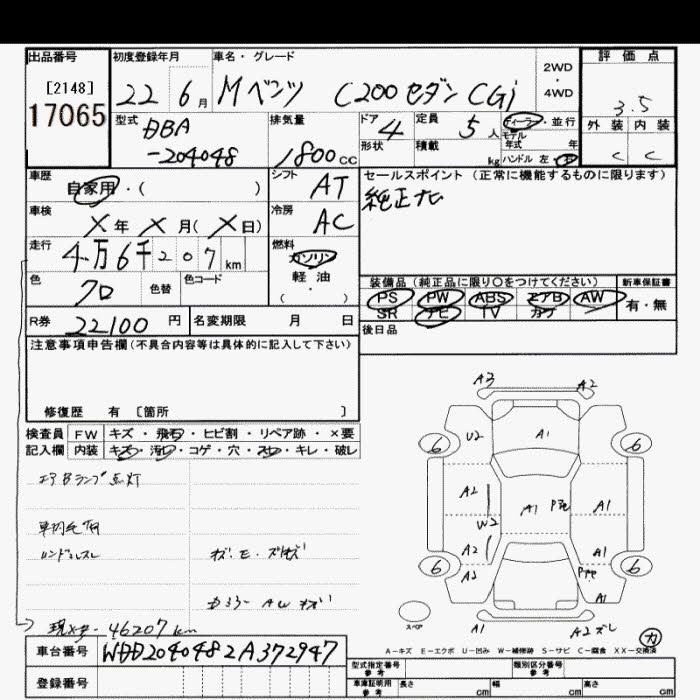 出品番号 初度登録年月 車名・グレード 評価点
[2148]
17065
22 6月 Mベンツ C200 セダン CGi
2WD
・
4WD
3.5
型式 DBA
-204048
排気量 1800cc
ドア 4 定員 5人 ディーラー・並行
形状 積載 kg モデル年式 年
ハンドル 左・右
外装 内装
C C
車歴 自家用・( )
シフト AT
セールスポイント (正常に機能するものに限ります)
純正ナビ
車検 X年 X月(X日)
冷房 AC
走行 4万6千207km
燃料 ガソリン
軽・油
・
( )
色 クロ 色替 色コード
装備品(純正品に限り○をつけてください) 新車保証書
PS PW ABS エアB AW 有・無
SR ナビ TV カワ
R券 22100円 名変期限 月 日
後日品
注意事項申告欄(不具合内容等は具体的に記入して下さい)
修復歴 有 [箇所 ]
検査員 FW キズ・飛石・ヒビ割・リペア跡・×要
記入欄 内装 キズ・汚レ・コゲ・穴・スレ・キレ・破レ
エアBランプ点灯
ハンドルスレ
A3 A2
6 U2 A1 6
A2 A1 A1
W2
A2 A1
6 A2 6
スペア A1 A2 ズレ
現メーター 46207km
A-キズ E-エクボ U-凹み W-補修跡 S-サビ C-腐食 XX-交換済
車台番号 WDD2040482A372947
登録番号
型式指定番号 参考 類別区分番号 参考
車庫証明用 参考 長さ cm 幅 cm 高さ cm